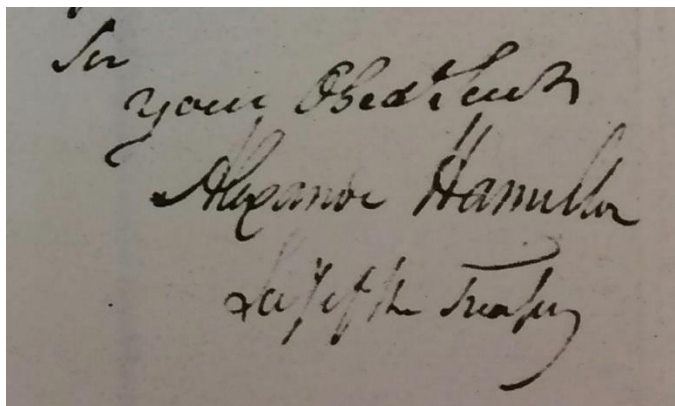 Sir
your Obed Servt
Alexander Hamilton
Secy of the Treasury